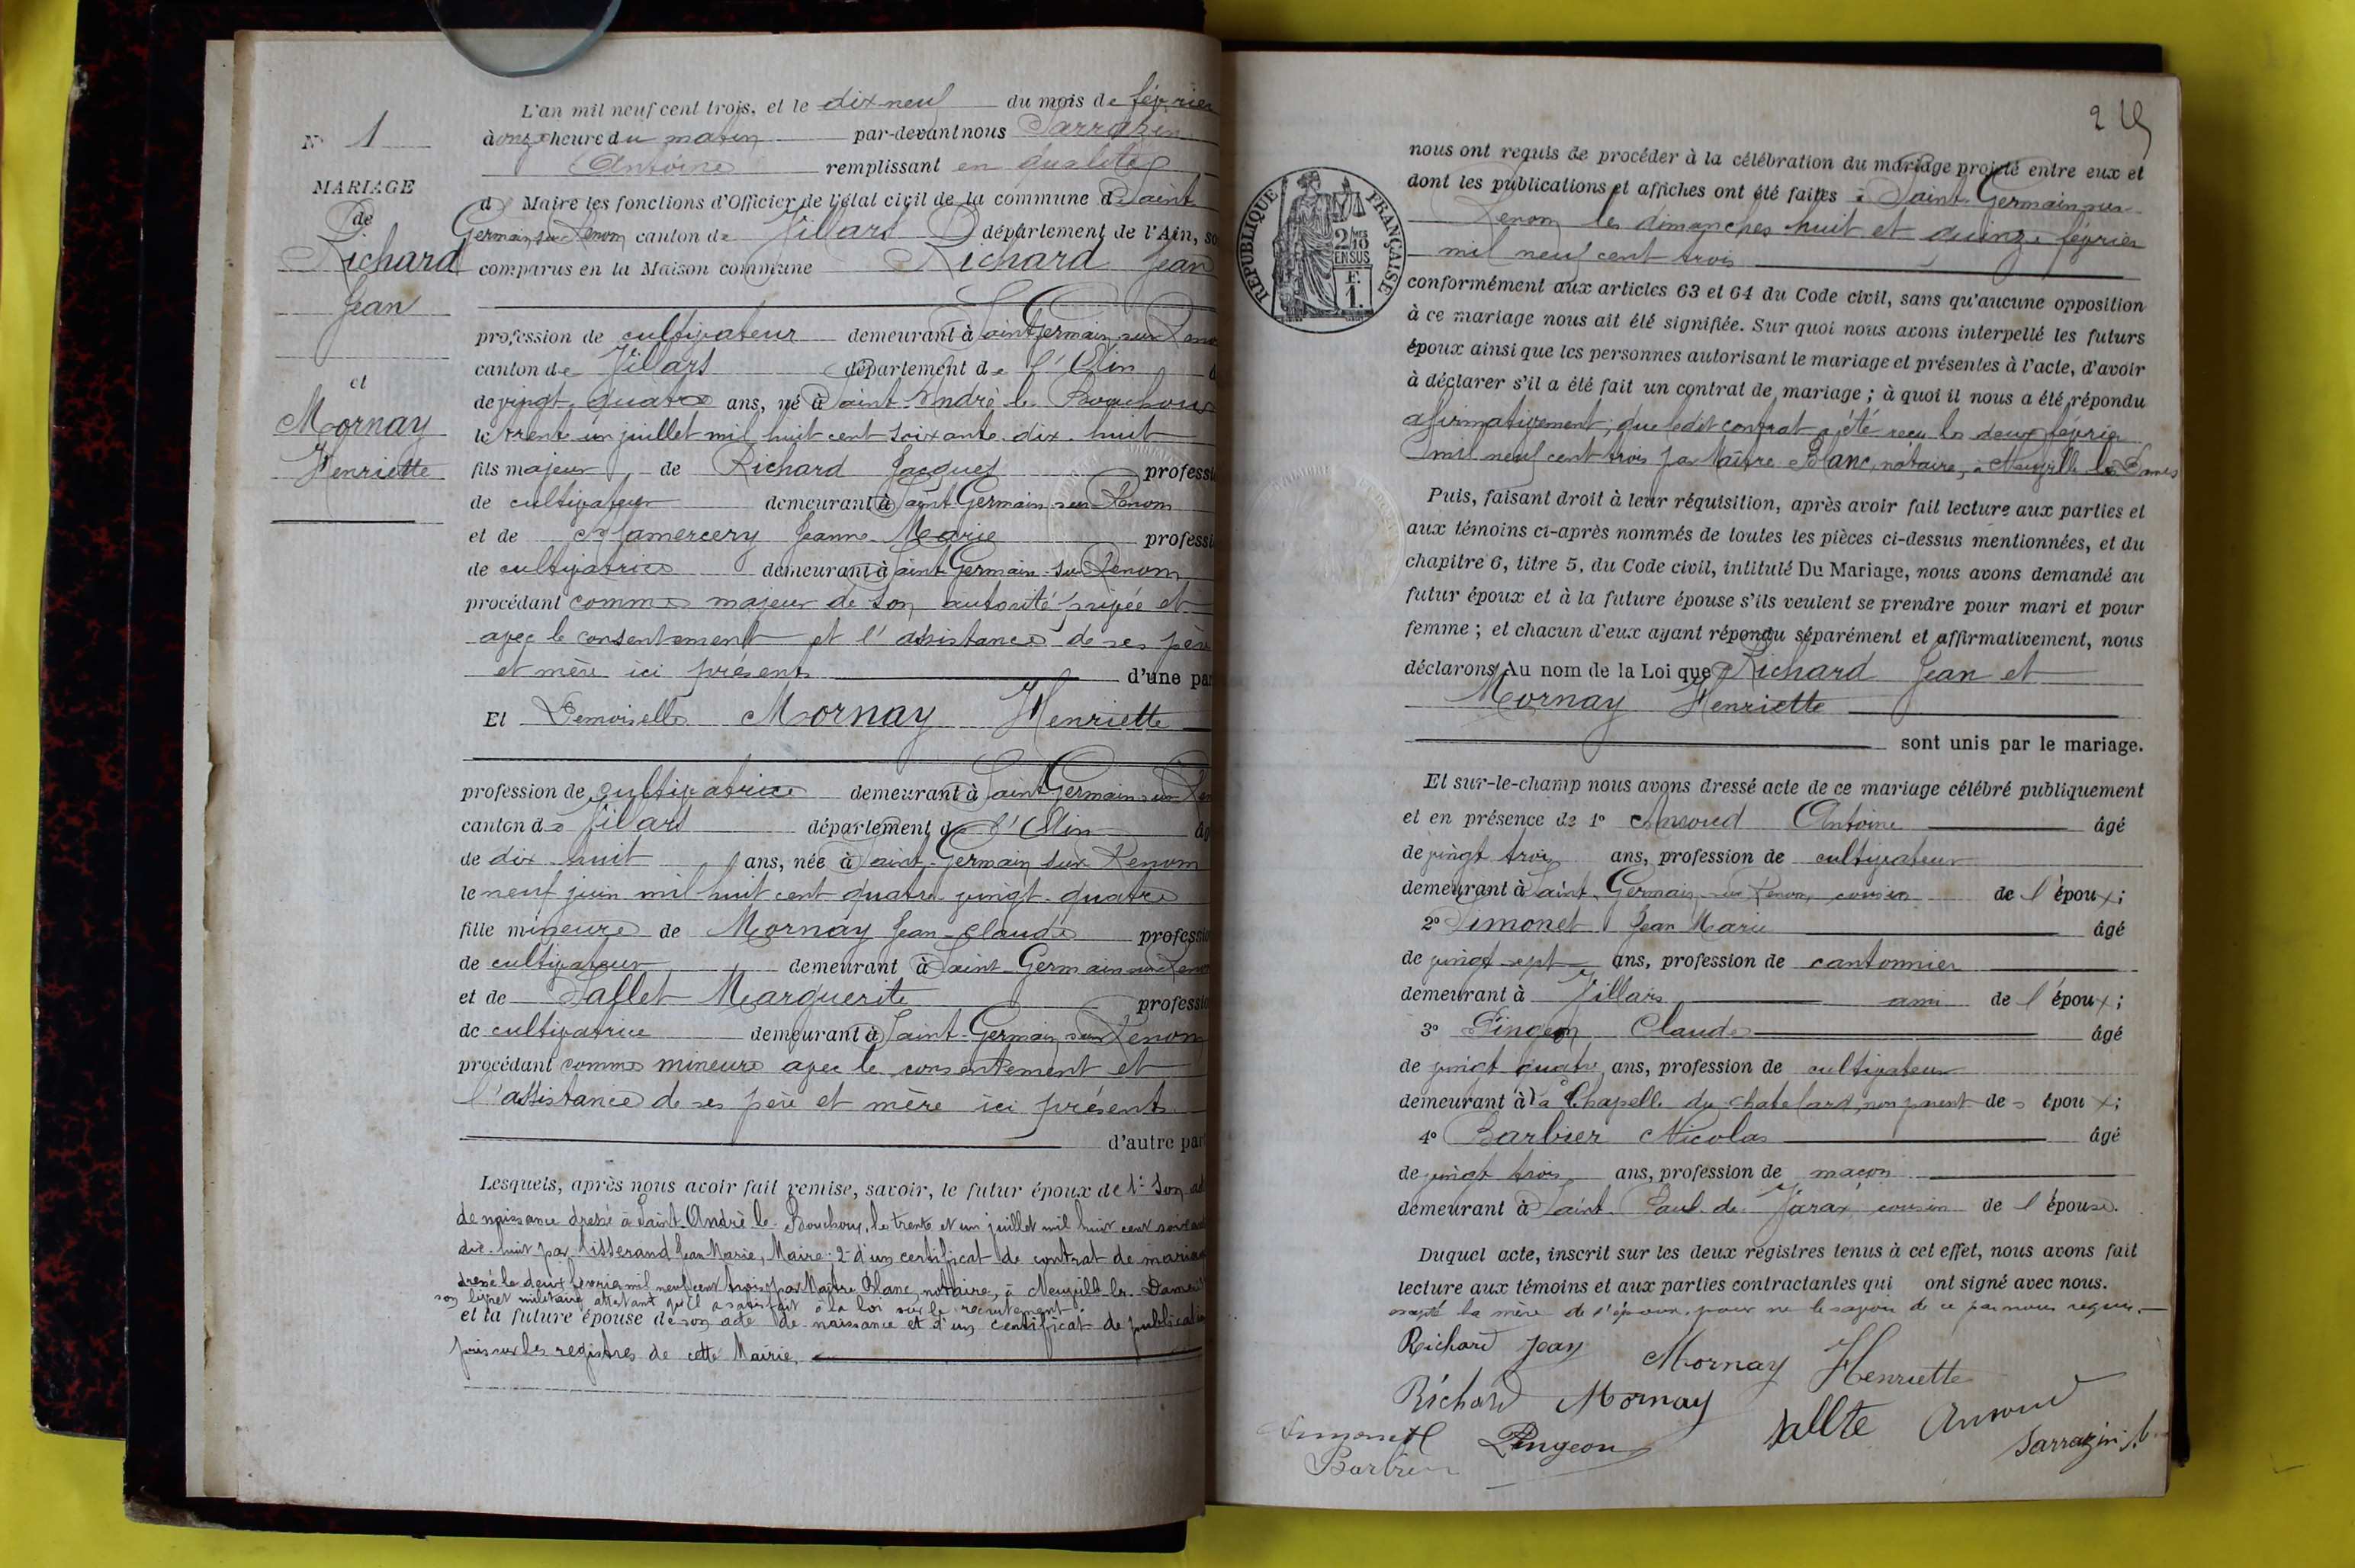 N° 1
MARIAGE
de
Richard
Jean
et
Mornay
Henriette
L'an mil neuf cent trois, et le dix neuf du mois de février
à onze heure du matin par-devant nous Sarrazin
Antoine remplissant en qualité
de Maire les fonctions d'Officier de l'état civil de la commune de Saint
Germain sur Renom canton de Villars département de l'Ain, so
comparus en la Maison commune Richard Jean
profession de cultivateur demeurant à Saint Germain sur Renom
canton de Villars département de l'Ain
de vingt quatre ans, né à Saint André le Bouchoux
le trente un juillet mil huit cent soixante dix huit
fils majeur de Richard Jacques professi
de cultivateur demeurant à Saint Germain sur Renom
et de Jeanne Marie professi
de cultivatrice demeurant à Saint Germain sur Renom
procédant comme majeur de son autorité privée et
avec le consentement et l'assistance de ses père
et mère ici présents d'une par
Et Demoiselle Mornay Henriette
profession de cultivatrice demeurant à Saint Germain sur Ren
canton de Villars département de l'Ain âg
de dix huit ans, née à Saint Germain sur Renom
le neuf juin mil huit cent quatre vingt quatre
fille mineure de Mornay Jean-Claude professio
de cultivateur demeurant à Saint Germain sur Renom
et de Sallet Marguerite professio
de cultivatrice demeurant à Saint-Germain sur Renom
procédant comme mineure avec le consentement et
l'assistance de ses père et mère ici présents
d'autre part
Lesquels, après nous avoir fait remise, savoir, le futur époux de 1° Son ac
de naissance dressé à Saint-André-le-Bouchoux, le trente et un juillet mil huit cent soixante
dix-huit par Tisserand Jean Marie, Maire. 2° d'un certificat de contrat de mariage
dressé le deux février mil neuf cent trois par Maître Blanc, notaire, à Neuville les Dames
son livret militaire attestant qu'il a satisfait à la loi sur le recrutement.
et la future épouse de son acte de naissance et d'un certificat de publication
pris sur les registres de cette Mairie.
245
RÉPUBLIQUE FRANÇAISE
2/10 EN SUS
F.
1.
nous ont requis de procéder à la célébration du mariage projeté entre eux et
dont les publications et affiches ont été faites à Saint Germain sur
Renom les dimanches huit et quinze février
mil neuf cent trois
conformément aux articles 63 et 64 du Code civil, sans qu'aucune opposition
à ce mariage nous ait été signifiée. Sur quoi nous avons interpellé les futurs
époux ainsi que les personnes autorisant le mariage et présentes à l'acte, d'avoir
à déclarer s'il a été fait un contrat de mariage ; à quoi il nous a été répondu
afirmativement, que ledit contrat a été reçu le deux février
mil neuf cent trois par Maître Blanc, notaire, à Neuville les Dames
Puis, faisant droit à leur réquisition, après avoir fait lecture aux parties et
aux témoins ci-après nommés de toutes les pièces ci-dessus mentionnées, et du
chapitre 6, titre 5, du Code civil, intitulé Du Mariage, nous avons demandé au
futur époux et à la future épouse s'ils veulent se prendre pour mari et pour
femme ; et chacun d'eux ayant répondu séparément et affirmativement, nous
déclarons Au nom de la Loi que Richard Jean et
Mornay Henriette
sont unis par le mariage.
Et sur-le-champ nous avons dressé acte de ce mariage célébré publiquement
et en présence de 1° Ansoud Antoine âgé
de vingt trois ans, profession de cultivateur
demeurant à Saint Germain sur Renom, cousin de l'époux ;
2° Simonet Jean Marie âgé
de vingt sept ans, profession de cantonnier
demeurant à Villars ami de l'époux ;
3° Pingeon Claude âgé
de vingt quatre ans, profession de cultivateur
demeurant à la Chapelle du Chatelard, non parent des époux ;
4° Barbier Nicolas âgé
de vingt trois ans, profession de maçon
demeurant à Saint Paul de Varax cousin de l'épouse.
Duquel acte, inscrit sur les deux registres tenus à cet effet, nous avons fait
lecture aux témoins et aux parties contractantes qui ont signé avec nous.
excepté la mère de l'époux, pour ne le savoir de ce par nous requis.
Richard Jean Mornay Henriette
Richard Mornay
Sallte Ansoud
Simonet Pingeon Sarrazin A.
Barbier